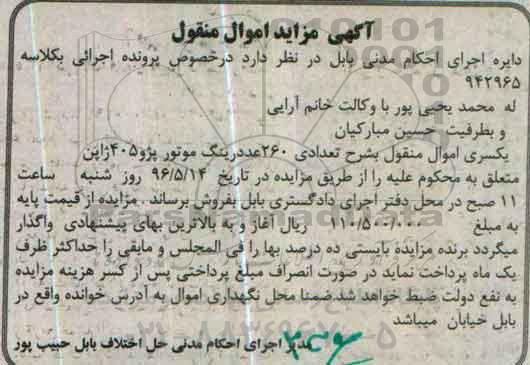 آگهی مزاید اموال منقول
دایره اجرای احکام مدنی بابل در نظر دارد درخصوص پرونده اجرائی بکلاسه
۹۴۲۹۶۵
له محمد یحیی پور با وکالت خانم آرایی
و بطرفیت حسین مبارکیان
یکسری اموال منقول بشرح تعدادی ۲۶۰عددرینگ موتور پژو۴۰۵ژاپن
متعلق به محکوم علیه را از طریق مزایده در تاریخ ۹۶/۵/۱۴ روز شنبه ساعت
۱۱ صبح در محل دفتر اجرای دادگستری بابل بفروش برساند . مزایده از قیمت پایه
به مبلغ ۱۱۰/۵۰۰/۰۰۰ ریال آغاز و به بالاترین بهای پیشنهادی واگذار
میگردد برنده مزایده بایستی ده درصد بها را فی المجلس و مابقی را حداکثر ظرف
یک ماه پرداخت نماید در صورت انصراف مبلغ پرداختی پس از کسر هزینه مزایده
به نفع دولت ضبط خواهد شد.ضمنا محل نگهداری اموال به آدرس خوانده واقع در
بابل خیابان میباشد
مدیر اجرای احکام مدنی حل اختلاف بابل حبیب پور
ParsNamadData